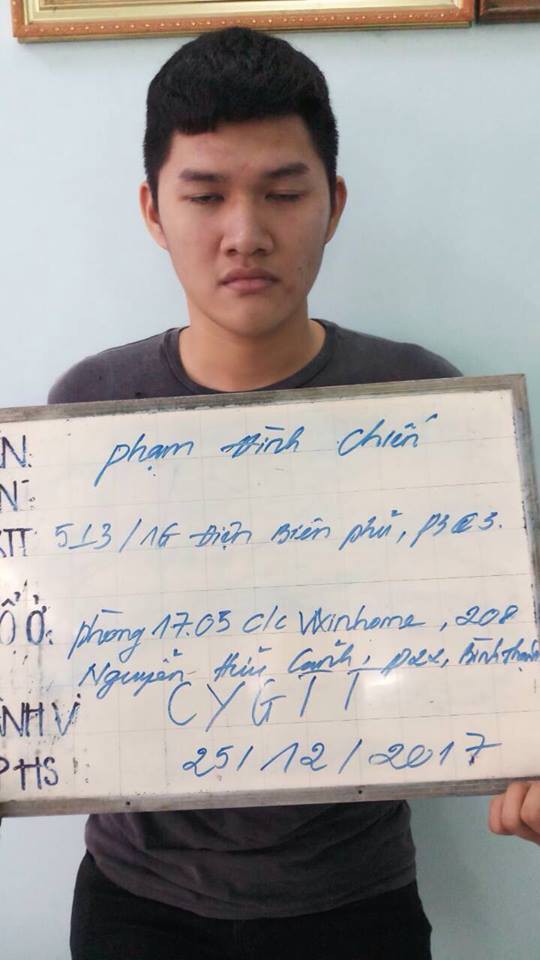 ÊN: Phạm Đình Chiến
N:
KTT 513/16 Điện Biên Phủ, P3 Q3.
Ổ Ở: phòng 17.05 c/c Vinhome, 208
Nguyễn Hữu Cảnh, P22, Bình Thạnh
ÀNH VI CYGTT
PHS 25/12/2017